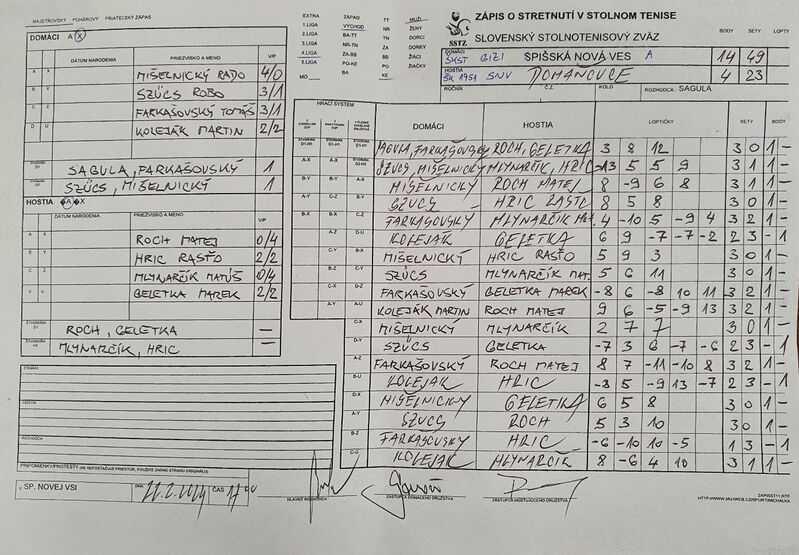 MAJSTROVSKÝ POHÁROVÝ PRIATEĽSKÝ ZÁPAS
DOMÁCI A X
DÁTUM NARODENIA PRIEZVISKO A MENO V/P
A X MIŠELNICKÝ RADO 4/0
B Y SZÜCS ROBO 3/1
C Z FARKAŠOVSKÝ TOMÁŠ 3/1
D U KOLEJÁK MARTIN 2/2
ŠTVORHRA D1 SAGULA, FARKAŠOVSKÝ 1
ŠTVORHRA D2 SZÜCS, MIŠELNICKÝ 1
HOSTIA A X
DÁTUM NARODENIA PRIEZVISKO A MENO V/P
A X ROCH MATEJ 0/4
B Y HRIC RASŤO 2/2
C Z MLYNARČÍK MATÚŠ 0/4
D U GELETKA MAREK 2/2
ROCH, GELETKA —
MLYNARČÍK, HRIC —
DOMÁCI
HOSTIA
ROZHODCA
PRIPOMIENKY/PROTESTY (AK NEPOSTAČUJE PRIESTOR, POUŽITE ZADNÚ STRANU ORIGINÁLU)
V SP. NOVEJ VSI DŇA ČAS 17 00
HLAVNÝ ROZHODCA ZÁSTUPCA DOMÁCEHO DRUŽSTVA ZÁSTUPCA HOSŤUJÚCEHO DRUŽSTVA
EXTRA ZÁPAD TT MUŽI
1.LIGA VÝCHOD NR ŽENY
2.LIGA BA-TT TN DORCI
3.LIGA NR-TN ZA DORKY
4.LIGA ZA-BB BB ŽIACI
5.LIGA PO-KE PO ŽIAČKY
MO BA KE
SSTZ
ZÁPIS O STRETNUTÍ V STOLNOM TENISE
SLOVENSKÝ STOLNOTENISOVÝ ZVÄZ
BODY SETY LOPTY
DOMÁCI ŠKST GIZI SPIŠSKÁ NOVÁ VES A 14 49
HOSTIA ŠK 1951 SNV DOMAŇOVCE 4 23
ROČNÍK Č.Z. KOLO ROZHODCA: SAGULA
HRACÍ SYSTÉM DOMÁCI HOSTIA LOPTIČKY SETY BODY
SAGULA, FARKAŠOVSKÝ ROCH, GELETKA 3 8 12 3 0 1 —
SZÜCS, MIŠELNICKÝ MLYNARČÍK, HRIC -13 5 5 9 3 1 1 —
B-Y A-X MIŠELNICKÝ ROCH MATEJ 8 -9 6 8 3 1 1 —
B-Y SZÜCS HRIC RASŤO 8 5 8 3 0 1 —
B-X B-X C-Z FARKAŠOVSKÝ MLYNARČÍK MAT. 4 -10 5 -9 4 3 2 1 —
A-Z D-U KOLEJÁK GELETKA 6 9 -7 -7 -2 2 3 — 1
C-Y B-X MIŠELNICKÝ HRIC RASŤO 5 9 3 3 0 1 —
B-Z C-Y SZÜCS MLYNARČÍK MAT. 5 6 11 3 0 1 —
C-X D-Z FARKAŠOVSKÝ GELETKA MAREK -8 6 -8 10 11 3 2 1 —
A-Y A-U KOLEJÁK MARTIN ROCH MATEJ 9 6 -5 -9 13 3 2 1 —
C-X MIŠELNICKÝ MLYNARČÍK 2 7 7 3 0 1 —
D-Y SZÜCS GELETKA -7 3 6 -7 -6 2 3 — 1
A-Z FARKAŠOVSKÝ ROCH MATEJ 8 7 -11 -10 8 3 2 1 —
B-U KOLEJÁK HRIC -8 5 -9 13 -7 2 3 — 1
D-X MIŠELNICKÝ GELETKA 6 5 8 3 0 1 —
A-Y SZÜCS ROCH 5 3 10 3 0 1 —
B-Z FARKAŠOVSKÝ HRIC -6 -10 10 -5 1 3 — 1
C-U KOLEJÁK MLYNARČÍK 8 -6 4 10 3 1 1 —
ZAPISST11.RTF
HTTP://WWW.MUJWEB.CZ/SPORT/MICHALKA